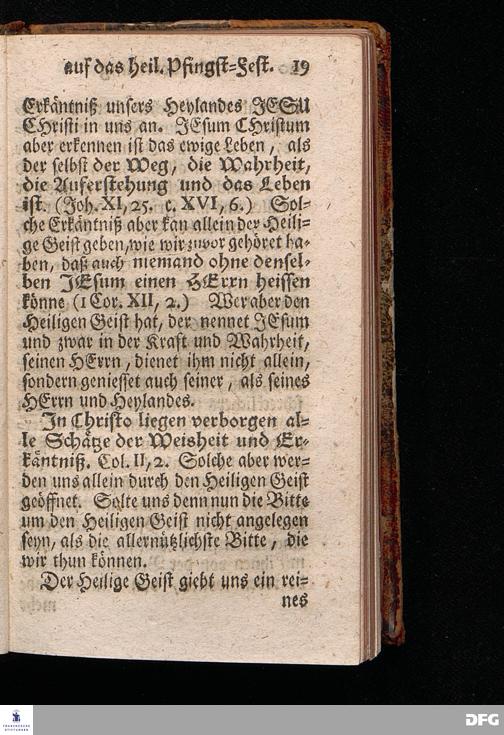 auf das heil. Pfingst=Fest. 19
Erkäntniß unsers Heylandes JESU
CHristi in uns an. JEsum CHristum
aber erkennen ist das ewige Leben, als
der selbst der Weg, die Wahrheit,
die Auferstehung und das Leben
ist. (Joh. XI, 25. c. XVI, 6.) Sol=
che Erkäntniß aber kan allein der Heili=
ge Geist geben, wie wir zuvor gehöret ha=
ben, daß auch niemand ohne densel=
ben JEsum einen HErrn heissen
könne (1 Cor. XII, 2.) Wer aber den
Heiligen Geist hat, der nennet JEsum
und zwar in der Kraft und Wahrheit,
seinen HErrn, dienet ihm nicht allein,
sondern geniesset auch seiner, als seines
HErrn und Heylandes.
In Christo liegen verborgen al=
le Schätze der Weisheit und Er=
käntniß. Col. II, 2. Solche aber wer=
den uns allein durch den Heiligen Geist
geöffnet. Solte uns denn nun die Bitte
um den Heiligen Geist nicht angelegen
seyn, als die allernützlichste Bitte, die
wir thun können.
Der Heilige Geist giebt uns ein rei=
nes
FRANCKESCHE
STIFTUNGEN
DFG